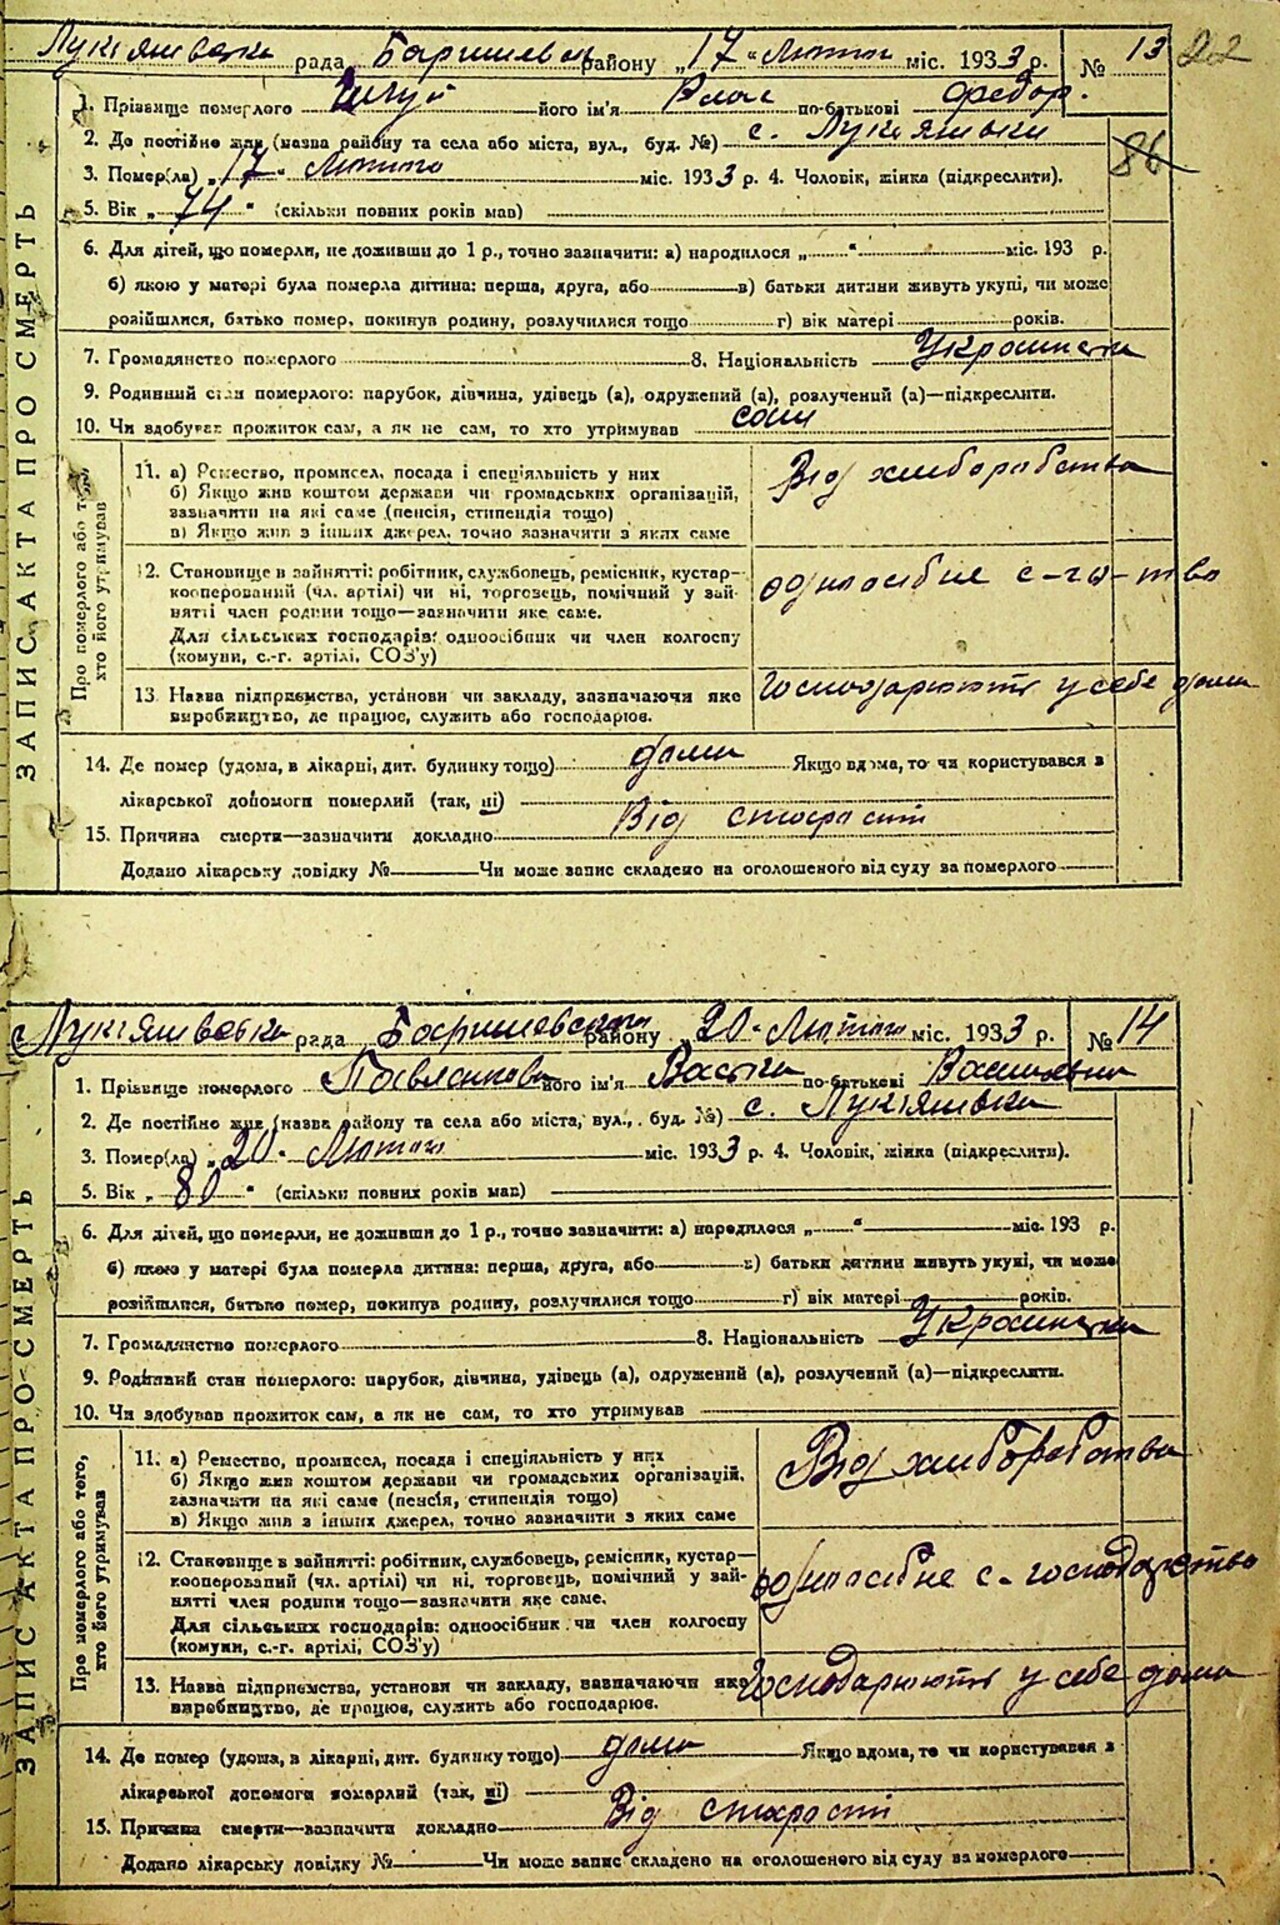 Лукіянівська рада Баришевськ району „17“ Лютого міс. 1933 р. № 13 22
1. Прізвище померлого його ім'я Влас по-батькові Федор.
2. Де постійно жив (назва району та села або міста, вул., буд. №) с. Лукіянівки
86
3. Помер(ла) „17“ Лютого міс. 1933 р. 4. Чоловік, жінка (підкреслити).
5. Вік „74“ (скільки повних років мав)
6. Для дітей, що померли, не доживши до 1 р., точно зазначити: а) народилося „ “ міс. 193 р.
б) якою у матері була померла дитина: перша, друга, або в) батьки дитини живуть укупі, чи може
розійшлися, батько помер, покинув родину, розлучилися тощо г) вік матері років.
7. Громадянство померлого 8. Національність Украинець
9. Родинний стан померлого: парубок, дівчина, удівець (а), одружений (а), розлучений (а)—підкреслити.
10. Чи здобував прожиток сам, а як не сам, то хто утримував сам
11. а) Ремество, промисел, посада і спеціяльність у них
б) Якщо жив коштом держави чи громадських організацій,
зазначити на які саме (пенсія, стипендія тощо)
в) Якщо жив з інших джерел, точно зазначити з яких саме
Від хліборобства
12. Становище в зайнятті: робітник, службовець, ремісник, кустар—
кооперований (чл. артілі) чи ні, торговець, помічний у зай-
нятті член родини тощо—зазначити яке саме.
Для сільських господарів: одноосібник чи член колгоспу
(комуни, с.-г. артілі, СОЗ'у)
одноосібне с-го-тво
13. Назва підприємства, установи чи закладу, зазначаючи яке
виробництво, де працює, служить або господарює.
Господарюють у себе дома
Про померлого або того,
хто його утримував
14. Де помер (удома, в лікарні, дит. будинку тощо) дома Якщо вдома, то чи користувався з
лікарської допомоги померлий (так, ні)
15. Причина смерти—зазначити докладно Від старості
Додано лікарську довідку № Чи може запис складено на оголошеного від суду за померлого
ЗАПИС АКТА ПРО СМЕРТЬ
Лукіянівська рада Баришевського району „20“ Лютого міс. 1933 р. № 14
1. Прізвище померлого його ім'я по-батькові
2. Де постійно жив (назва району та села або міста, вул., буд. №) с. Лукіянівка
3. Помер(ла) „20“ Лютого міс. 1933 р. 4. Чоловік, жінка (підкреслити).
5. Вік „80“ (скільки повних років мав)
6. Для дітей, що померли, не доживши до 1 р., точно зазначити: а) народилося „ “ міс. 193 р.
б) якою у матері була померла дитина: перша, друга, або в) батьки дитини живуть укупі, чи може
розійшлися, батько помер, покинув родину, розлучилися тощо г) вік матері років.
7. Громадянство померлого 8. Національність Украинка
9. Родинний стан померлого: парубок, дівчина, удівець (а), одружений (а), розлучений (а)—підкреслити.
10. Чи здобував прожиток сам, а як не сам, то хто утримував
11. а) Ремество, промисел, посада і спеціяльність у них
б) Якщо жив коштом держави чи громадських організацій,
зазначити на які саме (пенсія, стипендія тощо)
в) Якщо жив з інших джерел, точно зазначити з яких саме
Від хліборобства
12. Становище в зайнятті: робітник, службовець, ремісник, кустар—
кооперований (чл. артілі) чи ні, торговець, помічний у зай-
нятті член родини тощо—зазначити яке саме.
Для сільських господарів: одноосібник чи член колгоспу
(комуни, с.-г. артілі, СОЗ'у)
одноосібне с-господарство
13. Назва підприємства, установи чи закладу, зазначаючи яке
виробництво, де працює, служить або господарює.
Господарюють у себе дома
Про померлого або того,
хто його утримував
14. Де помер (удома, в лікарні, дит. будинку тощо) дома Якщо вдома, то чи користувався з
лікарської допомоги померлий (так, ні)
15. Причина смерти—зазначити докладно Від старості
Додано лікарську довідку № Чи може запис складено на оголошеного від суду за померлого
ЗАПИС АКТА ПРО СМЕРТЬ